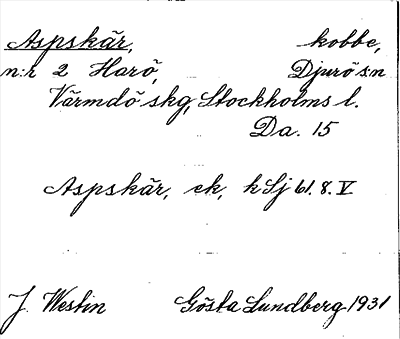 Aspskär, kobbe,
n:r 2 Harö, Djurö sn
Värmdö skg, Stockholms l.
Da. 15
Aspskär, ek, k Sj 61. 8. V
J Westin Gösta Lundberg 1931